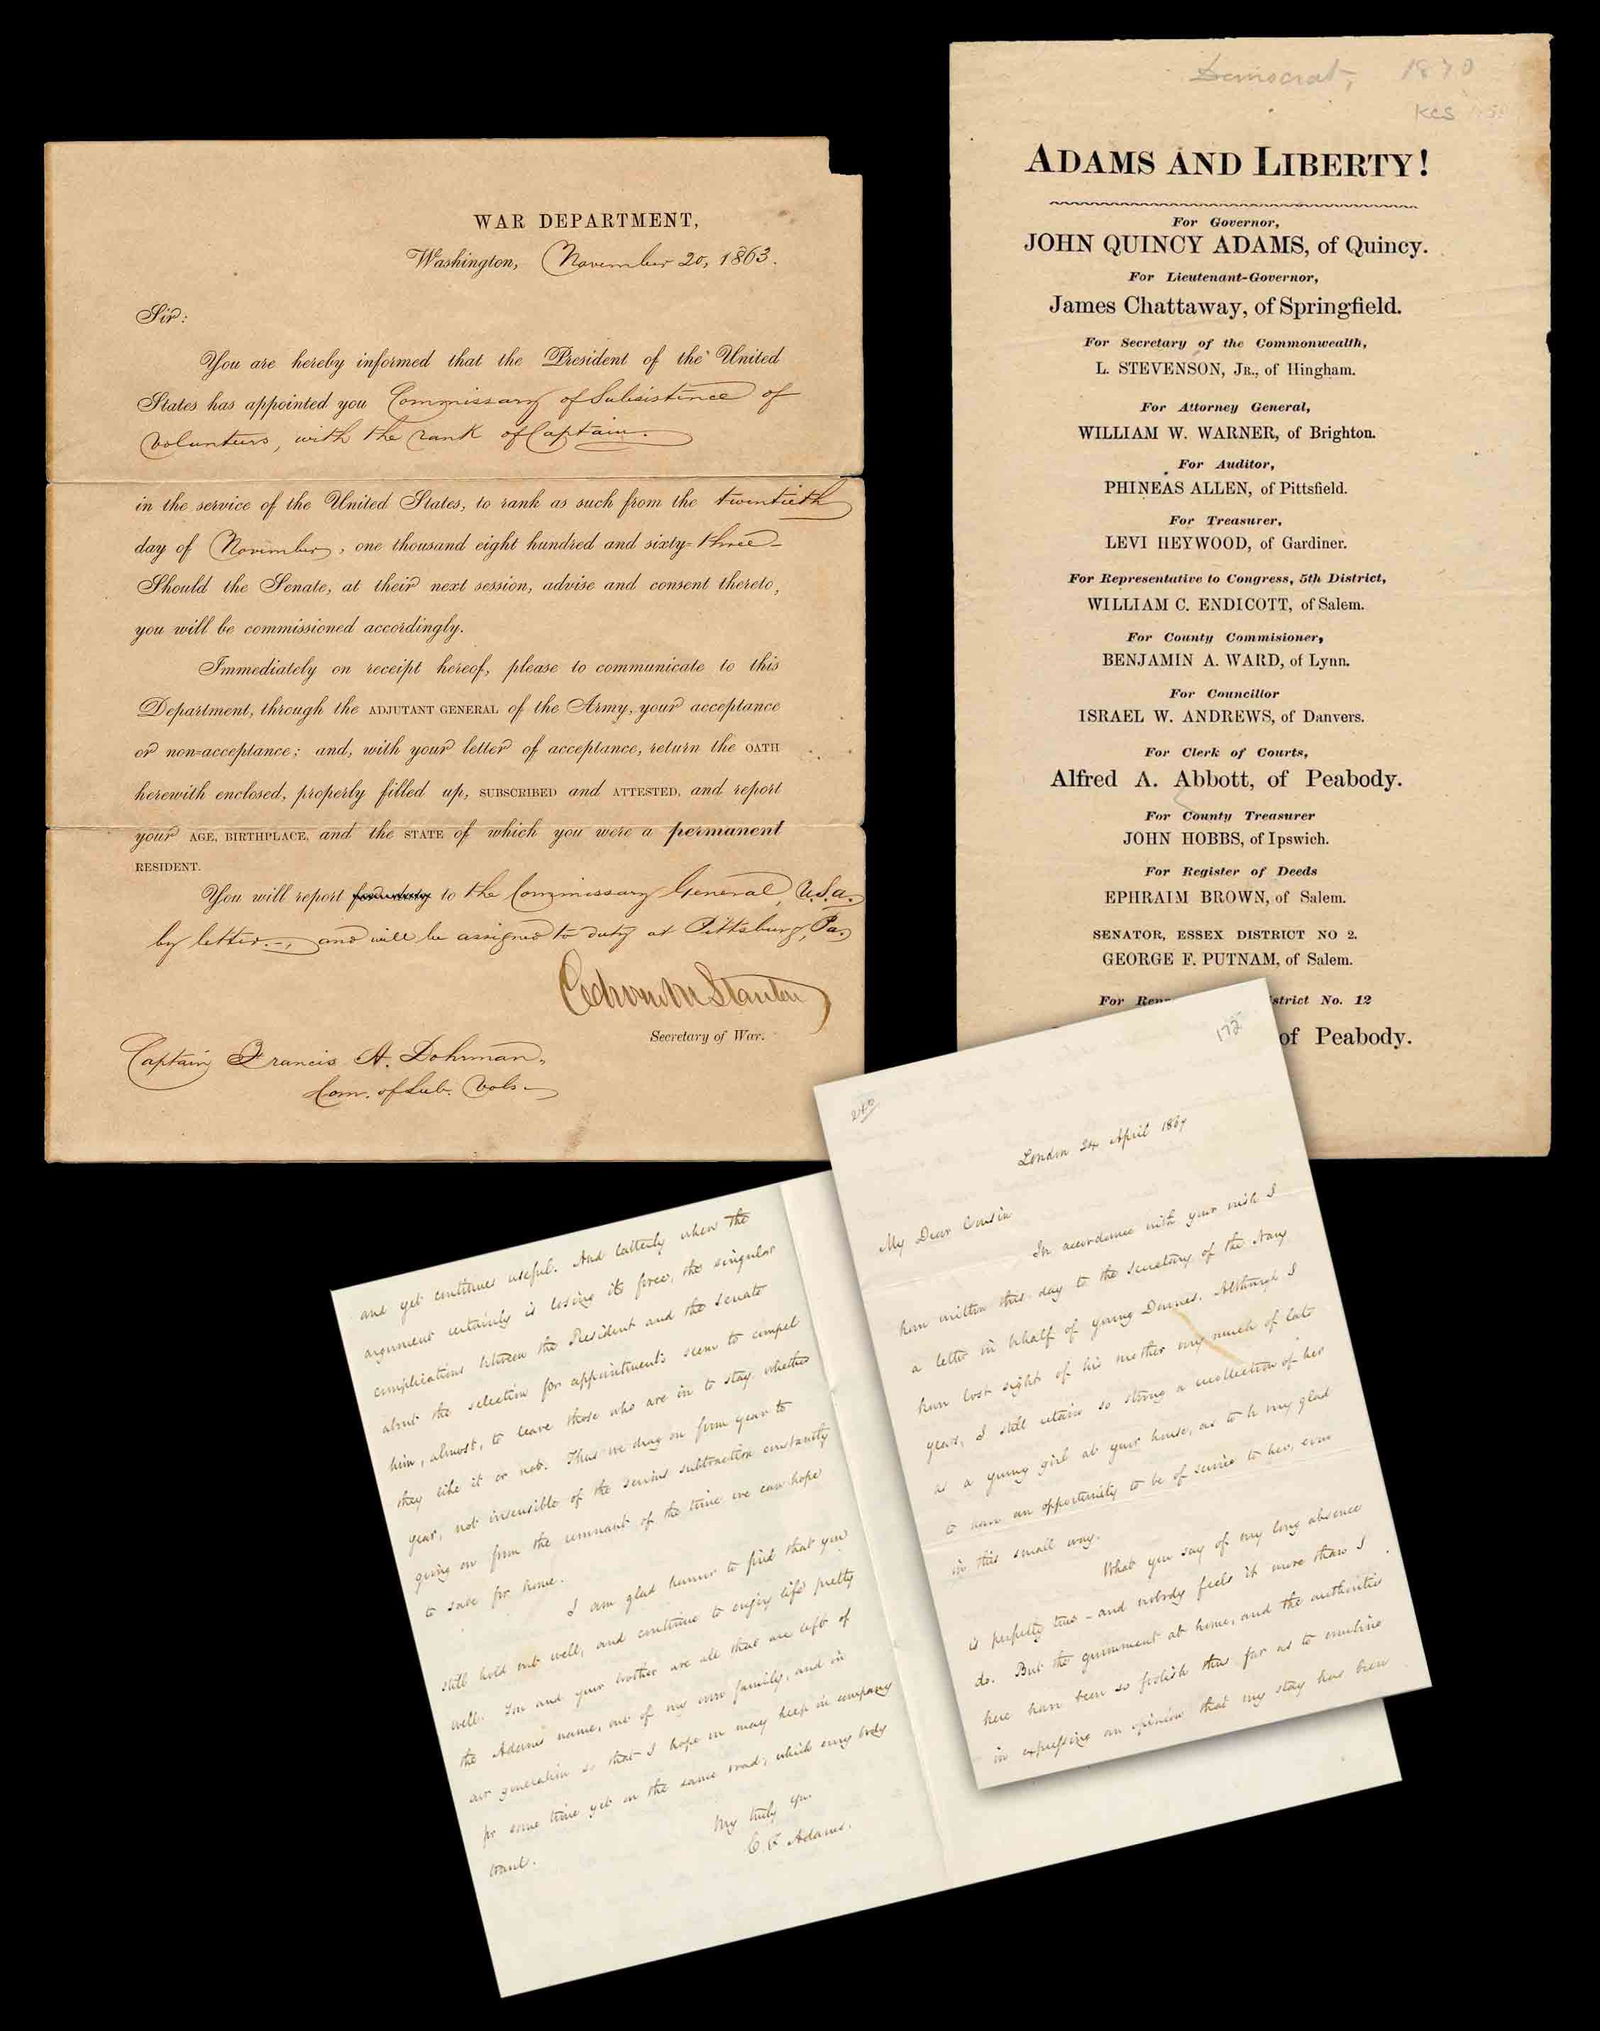 WAR DEPARTMENT,
Washington, November 20, 1863.
Sir:
You are hereby informed that the President of the United
States has appointed you Commissary of Subsistence of
Volunteers, with the rank of Captain.
in the service of the United States, to rank as such from the twentieth
day of November, one thousand eight hundred and sixty-three
Should the Senate, at their next session, advise and consent thereto,
you will be commissioned accordingly.
Immediately on receipt hereof, please to communicate to this
Department, through the ADJUTANT GENERAL of the Army, your acceptance
or non-acceptance; and, with your letter of acceptance, return the OATH
herewith enclosed, properly filled up, SUBSCRIBED and ATTESTED, and report
your AGE, BIRTHPLACE, and the STATE of which you were a permanent
RESIDENT.
You will report to the Commissary General, U.S.A.
by letter, and will be assigned to duty at Pittsburg, Pa.
Edwin M Stanton
Secretary of War.
Captain Francis A. Dohrman,
Com. of Sub. Vols.
Democrat, 1870
KCS
ADAMS AND LIBERTY!
For Governor,
JOHN QUINCY ADAMS, of Quincy.
For Lieutenant-Governor,
James Chattaway, of Springfield.
For Secretary of the Commonwealth,
L. STEVENSON, JR., of Hingham.
For Attorney General,
WILLIAM W. WARNER, of Brighton.
For Auditor,
PHINEAS ALLEN, of Pittsfield.
For Treasurer,
LEVI HEYWOOD, of Gardiner.
For Representative to Congress, 5th District,
WILLIAM C. ENDICOTT, of Salem.
For County Commisioner,
BENJAMIN A. WARD, of Lynn.
For Councillor
ISRAEL W. ANDREWS, of Danvers.
For Clerk of Courts,
Alfred A. Abbott, of Peabody.
For County Treasurer
JOHN HOBBS, of Ipswich.
For Register of Deeds
EPHRAIM BROWN, of Salem.
SENATOR, ESSEX DISTRICT NO 2.
GEORGE F. PUTNAM, of Salem.
For No. 12
of Peabody.
172
240
London 24 April 1867
My Dear Cousin
In accordance with your wish I
have written this day to the Secretary of the Navy
a letter in behalf of young Downes. Although I
have lost sight of his mother very much of late
years, I still retain so strong a recollection of her
as a young girl at your house, as to be very glad
to have an opportunity to be of service to her, even
in this small way.
What you say of my long absence
is perfectly true - and nobody feels it more than I
do. But the government at home, and the authorities
here have been so foolish thus far as to
in expressing an opinion that my stay has been
and yet continues useful. And latterly when the
argument certainly is losing its force, the singular
complications between the President and the Senate
about the selection for appointments seem to compel
him, almost, to leave those who are in to stay, whether
they like it or not. Thus we drag on from year to
year, not insensible of the serious subtraction constantly
going on from the remnant of the time we can hope
to save for home.
I am glad however to find that you
still hold out well, and continue to enjoy life pretty
well. You and your brother are all that are left of
the Adams name, out of my own family, and in
our generation so that I hope we may keep in company
for some time yet on the same road, which every body
must
Very truly yrs.
C F Adams.